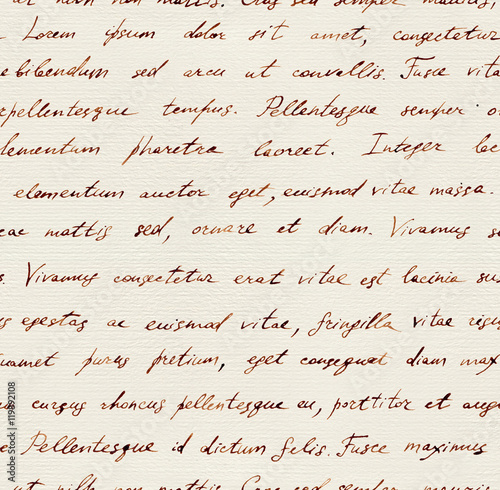 at nibh non mattis. Cras sed semper mauris,
Lorem ipsum dolor sit amet, consectetur
e bibendum sed arcu ut convallis. Fusce vita
rpellentesque tempus. Pellentesque semper o
lementum pharetra laoreet. Integer lac
elementum auctor eget, euismod vitae massa.
ac mattis sed, ornare et diam. Vivamus s
s. Vivamus consectetur erat vitae est lacinia sus
us egestas ac euismod vitae, fringilla vitae risu
amet purus pretium, eget consequat diam max
cursus rhoncus pellentesque eu, porttitor et aug
Pellentesque id dictum felis. Fusce maximus
ut nibh non mattis. Cras sed semper mauris